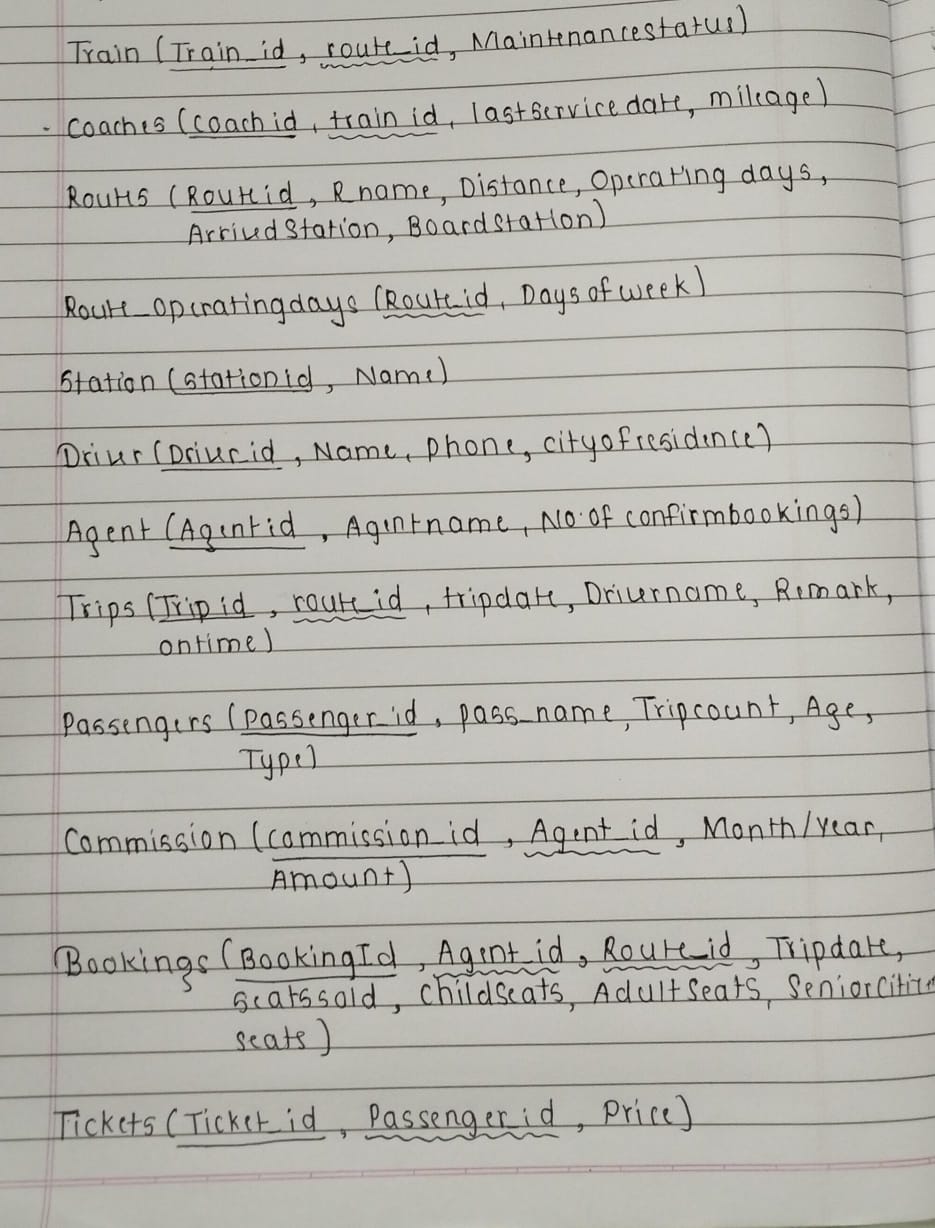 Train (Train_id, route_id, Maintenancestatus)
- Coaches (coach id, train id, lastservice date, mileage)
Routes (Routeid, Rname, Distance, Operating days,
Arrived Station, Board Station)
Route_Operatingdays (Route_id, Days of week)
Station (stationid, Name)
Driver (Driverid, Name, phone, cityofresidence)
Agent (Agentid, Agentname, No. of confirmbookings)
Trips (Trip id, route_id, tripdate, Drivername, Remark,
ontime)
Passengers (passenger_id, pass_name, Tripcount, Age,
Type)
Commission (commission_id, Agent_id, Month/year,
Amount)
Bookings (BookingId, Agent_id, Route_id, Tripdate,
seatssold, childseats, Adult seats,
seats)
Tickets (Ticket_id, Passenger_id, Price)